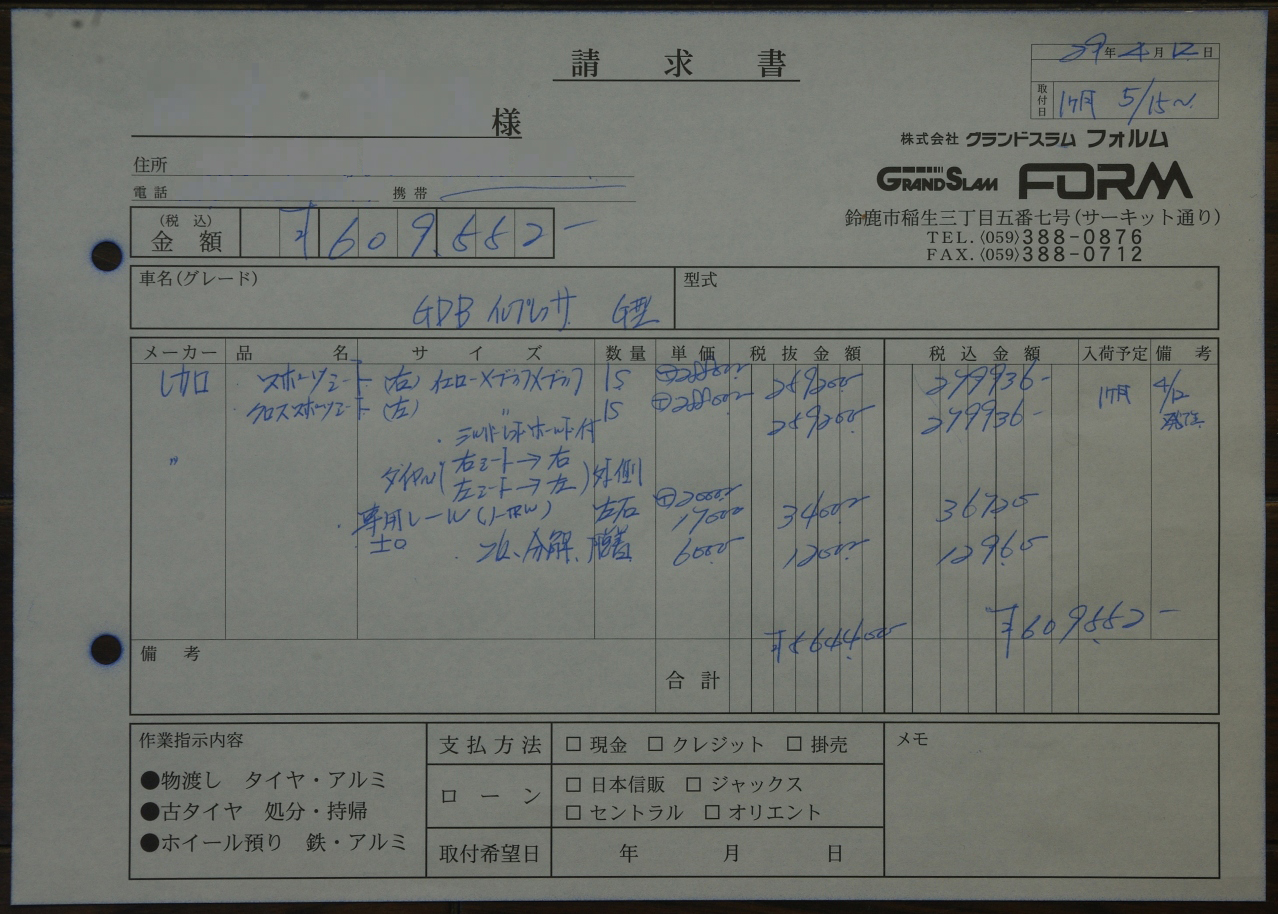 請求書
29年4月12日
取付日 1ヶ月 5/15~
様
株式会社 グランドスラム フォルム
GRANDSLAM FORM
鈴鹿市稲生三丁目五番七号(サーキット通り)
TEL.(059)388-0876
FAX.(059)388-0712
住所
電話 携帯
(税込)
金額 ¥609,552-
車名(グレード) 型式
GDB インプレッサ G型
メーカー 品名 サイズ 数量 単価 税抜金額 税込金額 入荷予定 備考
レカロ スポーツシート (右) イエロー×ブラック×ブラック 1S 259200 279936- 1ヶ月 4/12
クロススポーツシート (左) 〃 1S 259200 279936-
〃
ダイヤル (右シート→右
左シート→左) 外側
・専用レール 左右 17000 34000 36720
・ 分解、 6000 12000 12960
備考
合計 ¥564400 ¥609552-
作業指示内容
●物渡し タイヤ・アルミ
●古タイヤ 処分・持帰
●ホイール預り 鉄・アルミ
支払方法 □現金 □クレジット □掛売
ローン □日本信販 □ジャックス
□セントラル □オリエント
取付希望日 年 月 日
メモ